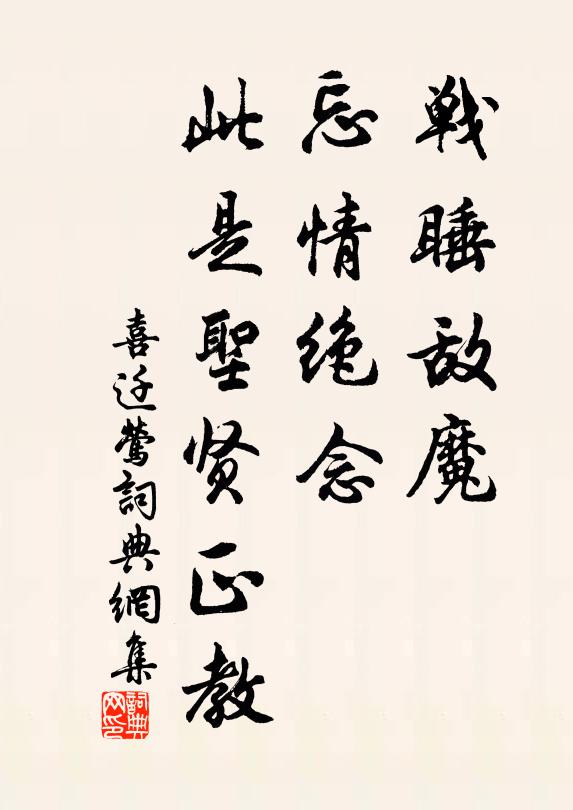 戦睡敌魔
忘情绝念
此是聖贤正教
喜迁莺詞典網集
詞典网印